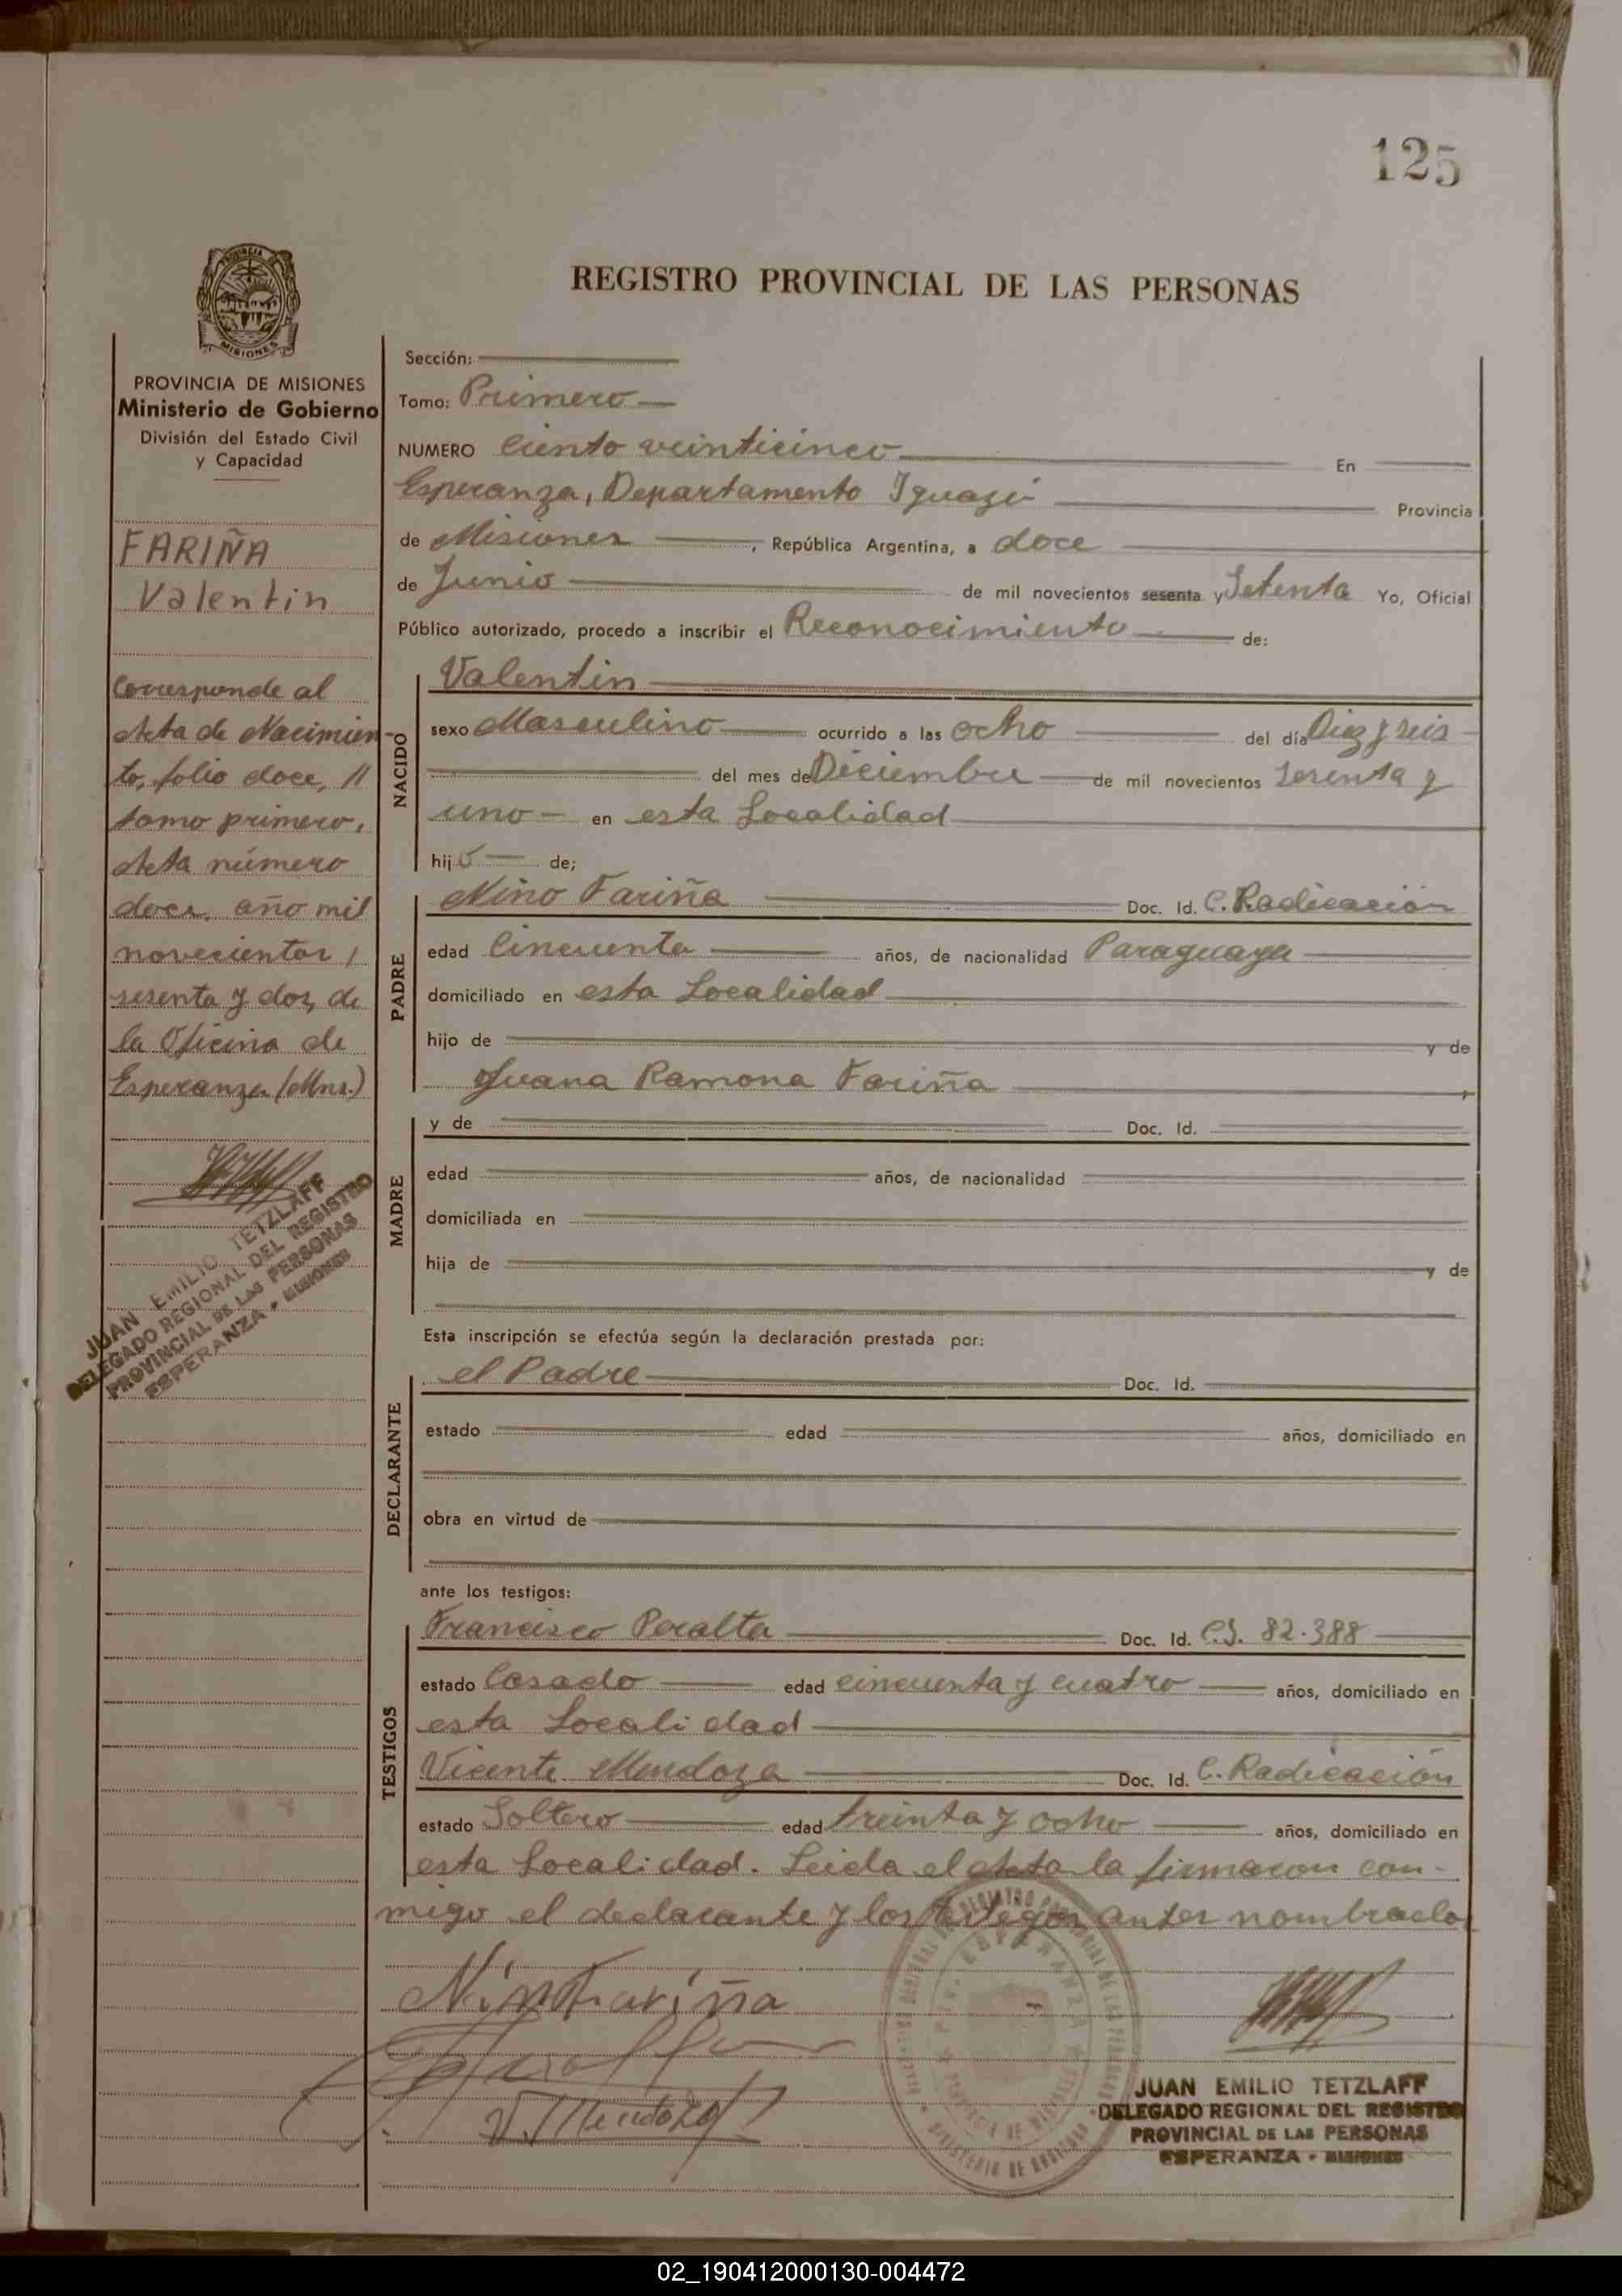 125
PROVINCIA DE
MISIONES
REGISTRO PROVINCIAL DE LAS PERSONAS
PROVINCIA DE MISIONES
Ministerio de Gobierno
División del Estado Civil
y Capacidad
FARIÑA
Valentin
Corresponde al
Acta de Nacimien
to, folio doce, //
tomo primero,
Acta número
doce, año mil
novecientos /
sesenta y dos, de
la Oficina de
Esperanza (Mns.)
JUAN EMILIO TETZLAFF
DELEGADO REGIONAL DEL REGISTRO
PROVINCIAL DE LAS PERSONAS
ESPERANZA - MISIONES
Sección:
Tomo: Primero
NUMERO Ciento veinticinco En
Esperanza, Departamento Iguazú Provincia
de Misiones, República Argentina, a doce
de Junio de mil novecientos sesenta y Setenta Yo, Oficial
Público autorizado, procedo a inscribir el Reconocimiento de:
NACIDO
Valentin
sexo Masculino ocurrido a las ocho del día Diez y seis
del mes de Diciembre de mil novecientos sesenta y
uno en esta Localidad
hijo de;
PADRE
Nino Fariña Doc. Id. C. Radicación
edad Cincuenta años, de nacionalidad Paraguaya
domiciliado en esta Localidad
hijo de y de
Juana Ramona Fariña
MADRE
y de Doc. Id.
edad años, de nacionalidad
domiciliada en
hija de y de
Esta inscripción se efectúa según la declaración prestada por:
DECLARANTE
el Padre Doc. Id.
estado edad años, domiciliado en
obra en virtud de
ante los testigos:
TESTIGOS
Francisco Peralta Doc. Id. C.I. 82.388
estado Casado edad cincuenta y cuatro años, domiciliado en
esta Localidad
Vicente Mendoza Doc. Id. C. Radicación
estado Soltero edad treinta y ocho años, domiciliado en
esta Localidad. Leida el Acta la firmaron con-
migo el declarante y los testigos antes nombrados
Nino Fariña
V. Mendoza
JUAN EMILIO TETZLAFF
DELEGADO REGIONAL DEL REGISTRO
PROVINCIAL DE LAS PERSONAS
ESPERANZA - MISIONES
02_190412000130-004472